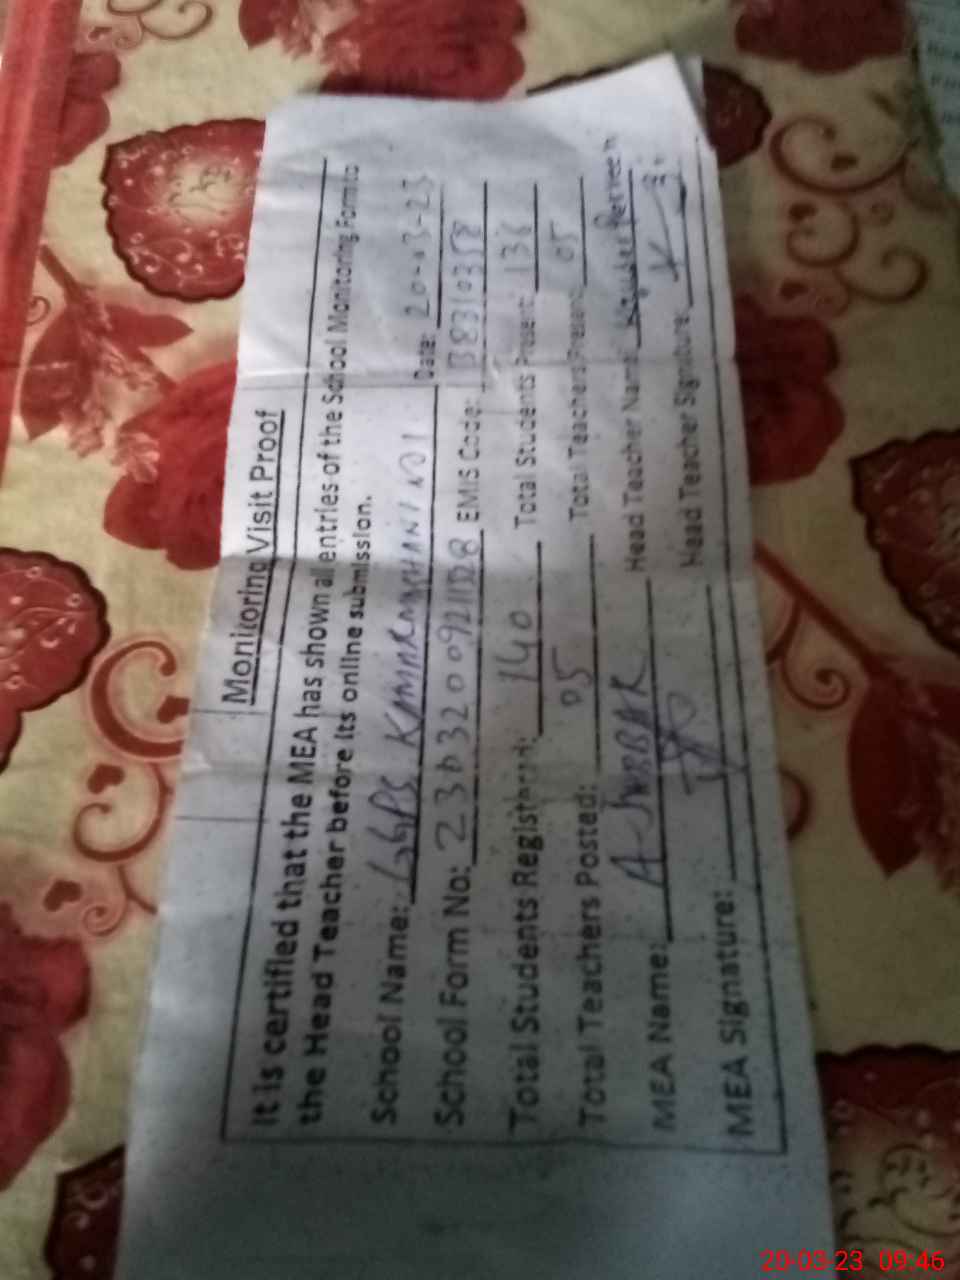 Monitoring Visit Proof
It is certified that the MEA has shown all entries of the School Monitoring Form to
the Head Teacher before its online submission.
School Name: GGPS Date: 20-03-23
School Form No: EMIS Code: B8310358
Total Students Registered: 140 Total Students Present: 136
Total Teachers Posted: 05 Total Teachers Present: 05
MEA Name: Head Teacher Name: Perveen
MEA Signature: Head Teacher Signature:
20-03-23 09:46